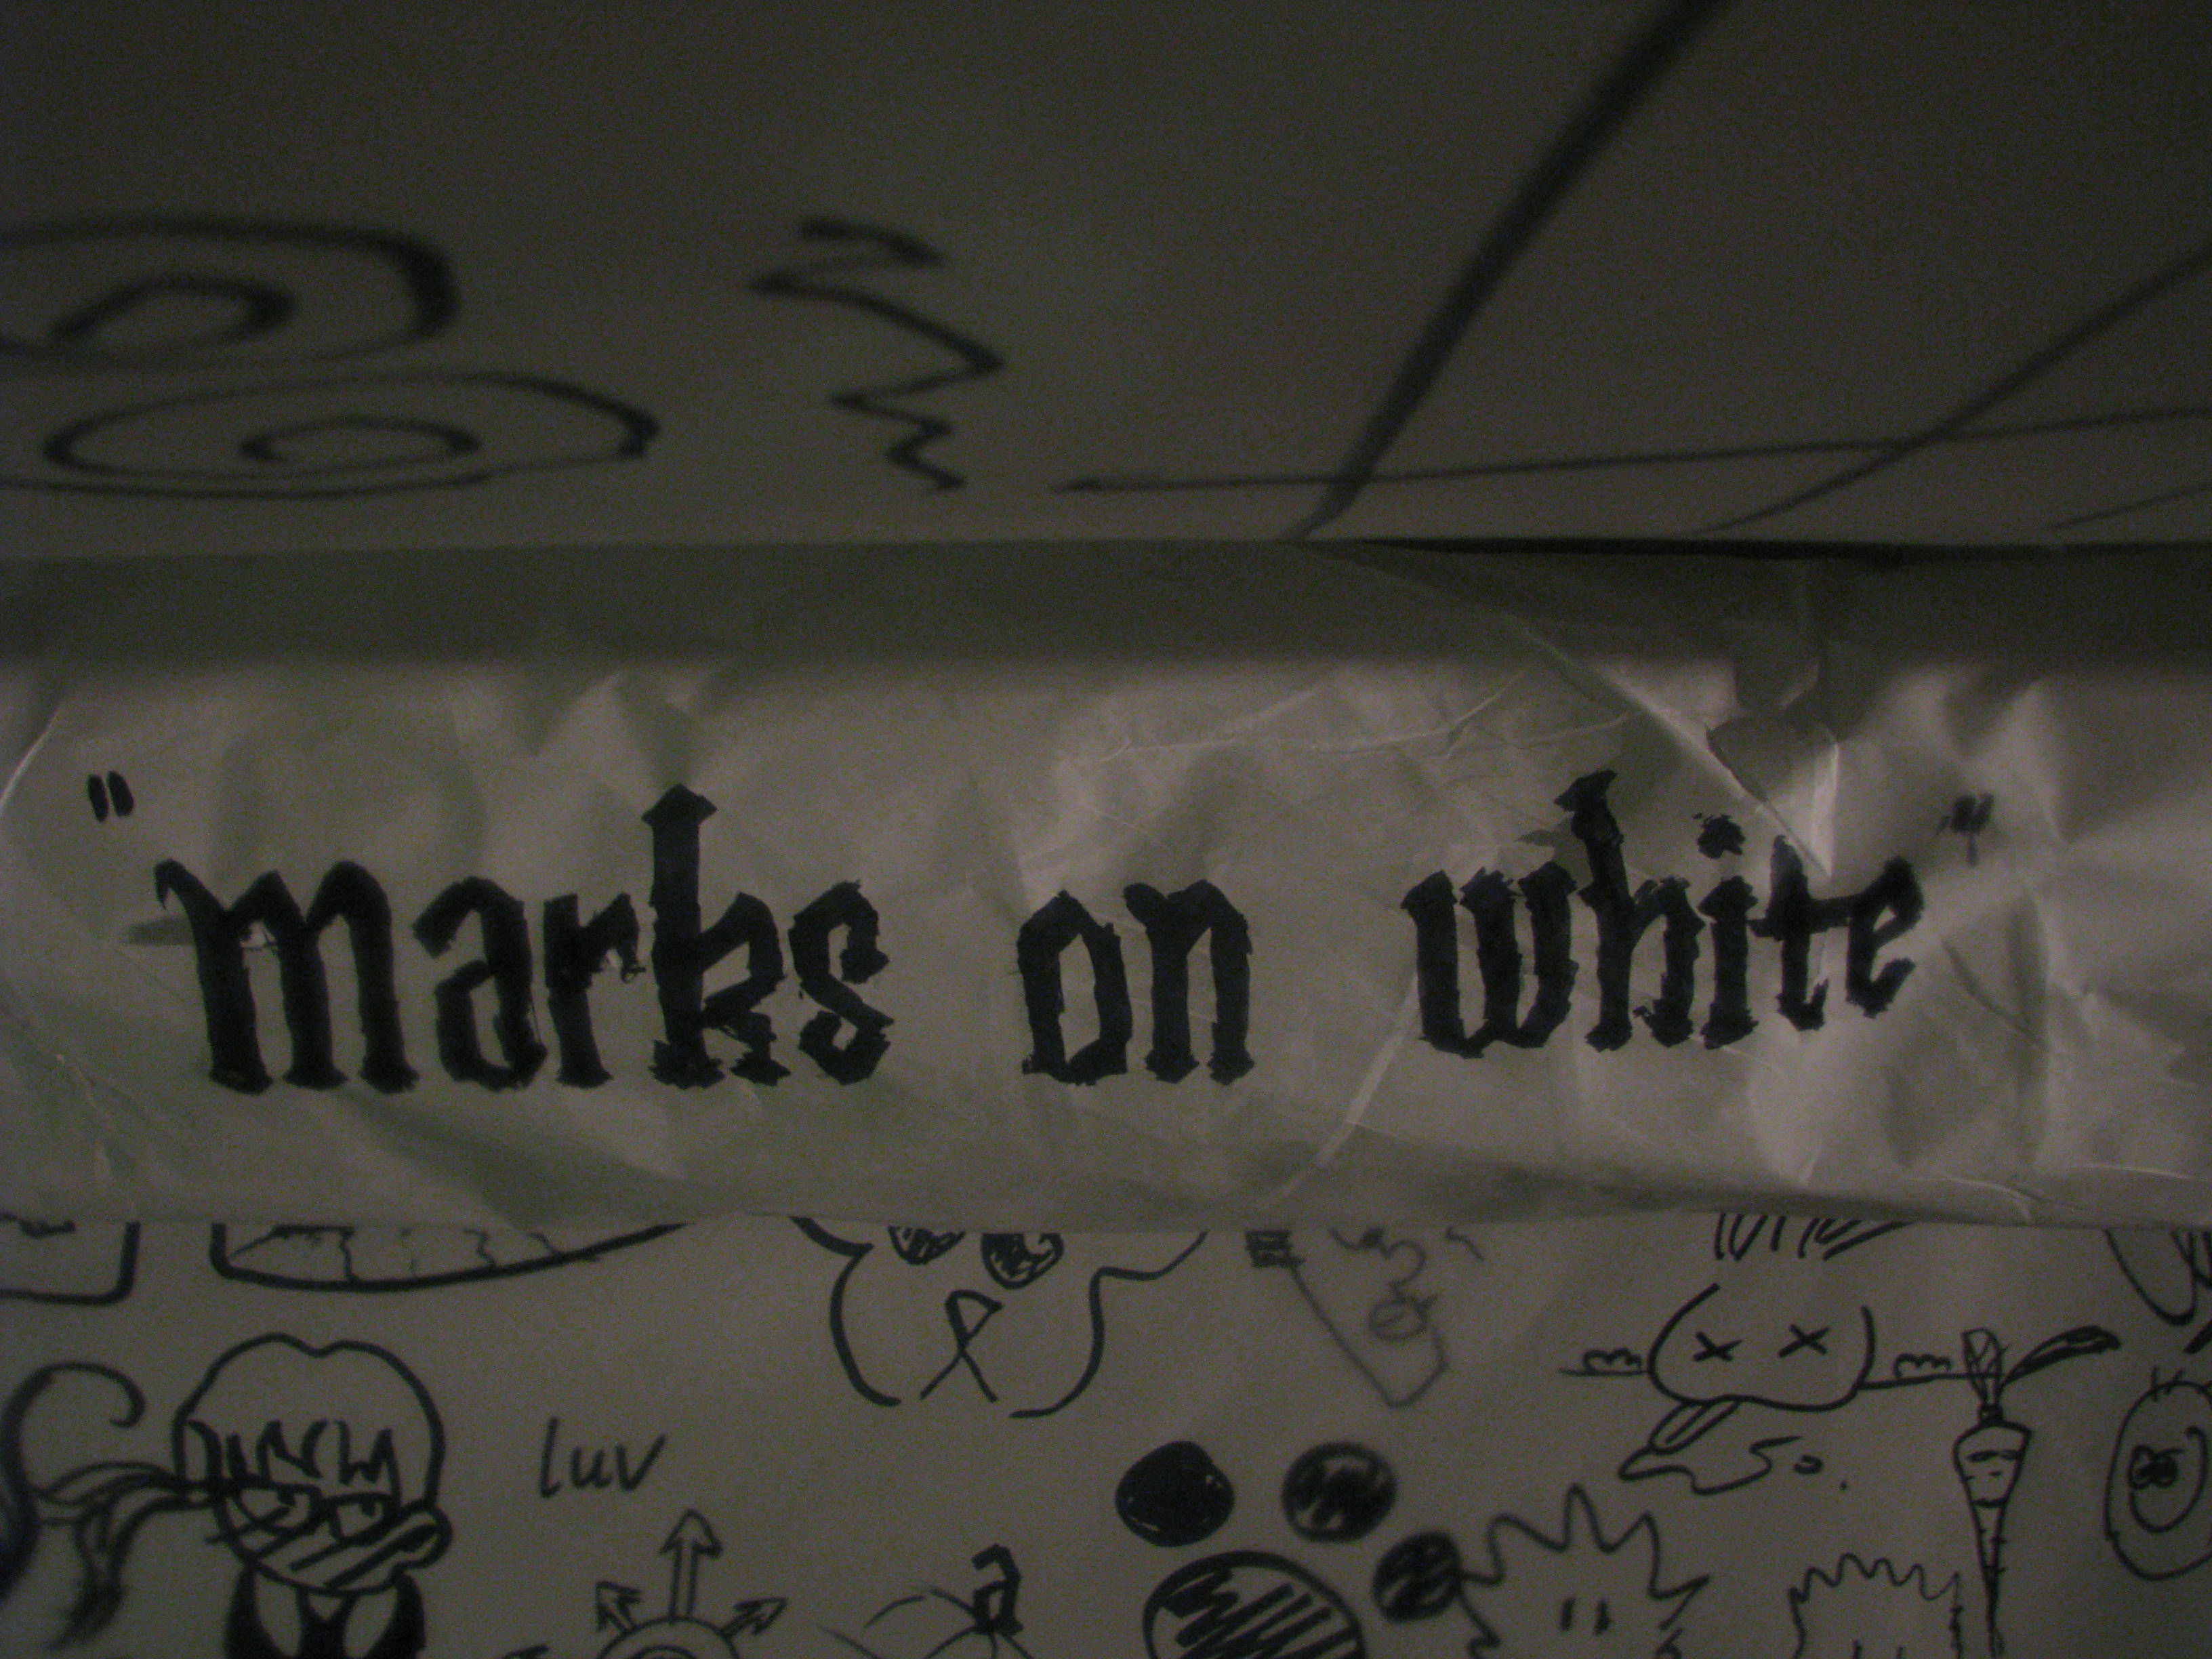 "marks on white"
luv
a